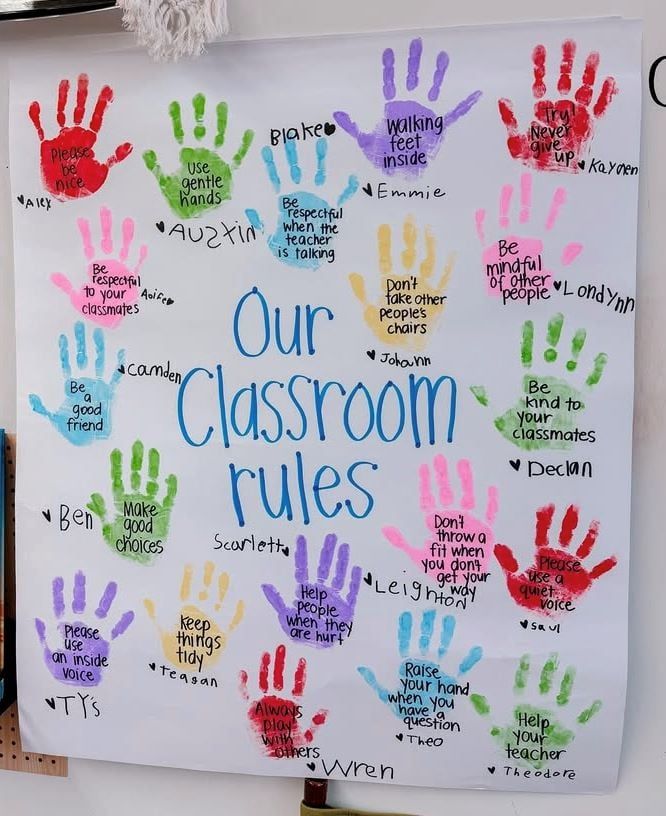 Our
Classroom
rules
Please
be
nice
♥Alex
Use
gentle
hands
♥Austin
Blake♥
Be
respectful
when the
teacher
is talking
Walking
feet
inside
♥Emmie
Try!
Never
give
up
♥Kaymen
Be
respectful
to your
classmates
Aoife♥
Don't
take other
people's
chairs
♥Johann
Be
mindful
of other
people
♥Londynn
Be
a
good
friend
♥Camden
Be
kind to
your
classmates
♥Declan
♥Ben
Make
good
choices
Scarlett♥
Help
people
when they
are hurt
Don't
throw a
fit when
you don't
get your
way
♥Leighton
Please
use a
quiet
voice
♥Saul
Please
use
an inside
voice
♥TY's
Keep
things
tidy
♥Teagan
Always
play
with
others
♥Wren
Raise
your hand
when you
have a
question
♥Theo
Help
your
teacher
♥Theodore